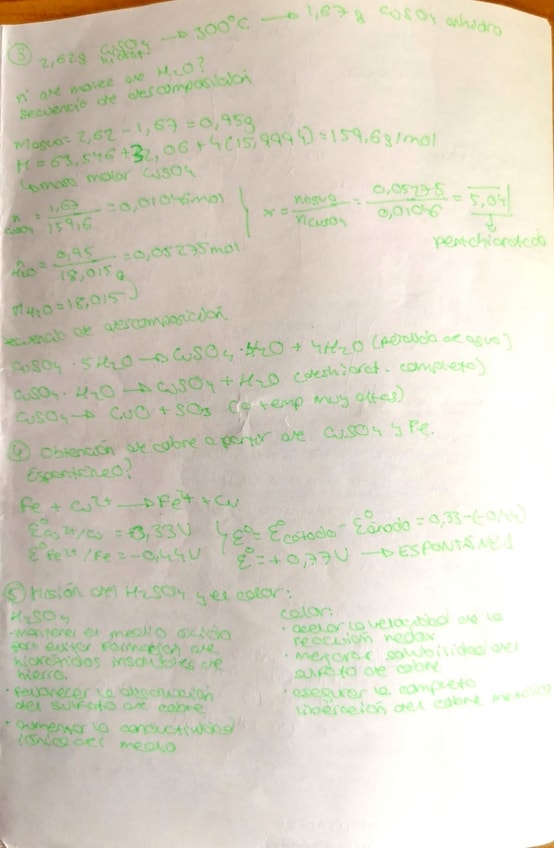 ③ 2,62g CuSO4 hidrat → 300°C → 1,67g CuSO4 anhidro
nº de moles de H2O?
secuencia de descomposición
magua = 2,62 - 1,67 = 0,95g
M = 63,546 + 32,06 + 4(15,9994) = 159,6g/mol
↳ masa molar CuSO4
n CuSO4 = 1,67/159,6 = 0,01046mol } x = nagua/nCuSO4 = 0,05275/0,01046 = 5,04
↓
pentahidratado
nH2O = 0,95/18,015g = 0,05275mol
MH2O = 18,015
secuencia de descomposición
CuSO4 · 5H2O → CuSO4 · H2O + 4H2O (pérdida de agua)
CuSO4 · H2O → CuSO4 + H2O (deshidrat. completa)
CuSO4 → CuO + SO3 (a temp muy altas)
④ Obtención de cobre a partir de CuSO4 y Fe.
Espontáneo?
Fe + Cu2+ → Fe2+ + Cu
Ɛ°Cu2+/Cu = +0,33V } Ɛ° = Ɛ°cátodo - Ɛ°ánodo = 0,33-(-0,44)
Ɛ°Fe2+/Fe = -0,44V Ɛ° = +0,77V → ESPONTÁNEA
⑤ Misión del H2SO4 y el calor:
H2SO4
· mantener el medio ácido
para evitar formación de
hidróxidos insolubles de
hierro.
· favorecer la disolución
del sulfato de cobre
· aumentar la conductividad
iónica del medio
calor:
· acelerar la velocidad de la
reacción redox
· mejorar solubilidad del
sulfato de cobre
· asegurar la completa
liberación del cobre metálico